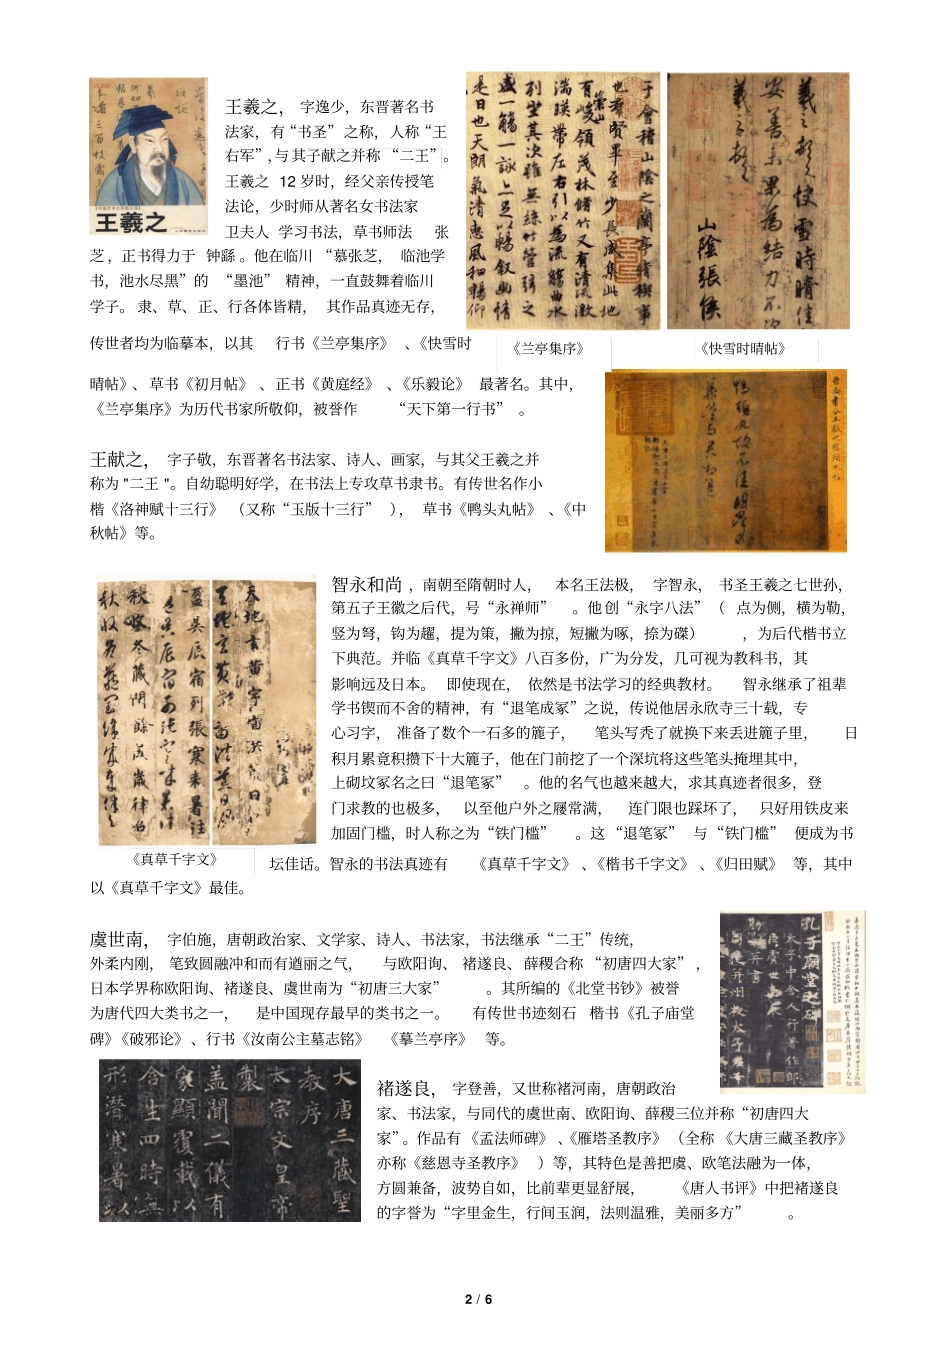 王羲之，字逸少，东晋著名书
法家，有“书圣”之称，人称“王
右军”,与其子献之并称“二王”。
王羲之 12 岁时，经父亲传授笔
法论，少时师从著名女书法家
卫夫人 学习书法，草书师法 张
芝，正书得力于 钟繇。他在临川“慕张芝， 临池学
书，池水尽黑”的 “墨池” 精神，一直鼓舞着临川
学子。 隶、草、正、行各体皆精， 其作品真迹无存，
传世者均为临摹本，以其 行书《兰亭集序》、《快雪时
晴帖》、草书《初月帖》、正书《黄庭经》、《乐毅论》 最著名。其中，
《兰亭集序》为历代书家所敬仰，被誉作 “天下第一行书” 。
王羲之
于會稽山陰之蘭亭脩稧事
也羣賢畢至少長咸集此地
有崇山峻領茂林脩竹又有清流激
湍暎帶左右引以為流觴曲水
列坐其次雖無絲竹管弦之
盛一觴一詠亦足以暢叙幽情
是日也天朗氣清惠風和暢仰
《兰亭集序》
羲之頓首快雪時晴佳
安善未果為結力不次
羲之頓首
山陰張侯
《快雪时晴帖》
王献之， 字子敬，东晋著名书法家、诗人、画家，与其父王羲之并
称为 "二王 "。自幼聪明好学，在书法上专攻草书隶书。有传世名作小
楷《洛神赋十三行》 （又称“玉版十三行” ）， 草书《鸭头丸帖》、《中
秋帖》等。
智永和尚 ，南朝至隋朝时人， 本名王法极， 字智永， 书圣王羲之七世孙，
第五子王徽之后代，号“永禅师” 。他创“永字八法”（ 点为侧，横为勒，
竖为弩，钩为趯，提为策，撇为掠，短撇为啄，捺为磔） ，为后代楷书立
下典范。并临《真草千字文》八百多份，广为分发，几可视为教科书，其
影响远及日本。 即使现在， 依然是书法学习的经典教材。 智永继承了祖辈
学书锲而不舍的精神，有“退笔成冢”之说，传说他居永欣寺三十载，专
心习字， 准备了数个一石多的簏子， 笔头写秃了就换下来丢进簏子里， 日
积月累竟积攒下十大簏子，他在门前挖了一个深坑将这些笔头掩埋其中，
上砌坟冢名之曰“退笔冢” 。他的名气也越来越大，求其真迹者很多，登
门求教的也极多， 以至他户外之屦常满， 连门限也踩坏了， 只好用铁皮来
加固门槛，时人称之为“铁门槛” 。这“退笔冢” 与“铁门槛” 便成为书
《真草千字文》
坛佳话。智永的书法真迹有 《真草千字文》、《楷书千字文》、《归田赋》 等，其中
以《真草千字文》最佳。
虞世南， 字伯施，唐朝政治家、文学家、诗人、书法家，书法继承“二王”传统，
外柔内刚， 笔致圆融冲和而有遒丽之气， 与欧阳询、 褚遂良、薛稷合称 “初唐四大家”，
日本学界称欧阳询、褚遂良、虞世南为“初唐三大家” 。其所编的《北堂书钞》被誉
为唐代四大类书之一， 是中国现存最早的类书之一。 有传世书迹刻石 楷书《孔子庙堂
碑》《破邪论》、行书《汝南公主墓志铭》 《摹兰亭序》 等。
孔子廟堂之碑
大唐三藏聖
教序
太宗文皇帝
製
蓋聞二儀有
象顯覆載以
含生四時無
形潛寒暑以
褚遂良， 字登善，又世称褚河南，唐朝政治
家、书法家，与同代的虞世南、欧阳询、薛稷三位并称“初唐四大
家”。作品有《孟法师碑》、《雁塔圣教序》（全称《大唐三藏圣教序》
亦称《慈恩寺圣教序》 ）等，其特色是善把虞、欧笔法融为一体，
方圆兼备，波势自如，比前辈更显舒展， 《唐人书评》中把褚遂良
的字誉为“字里金生，行间玉润，法则温雅，美丽多方” 。
2 / 6